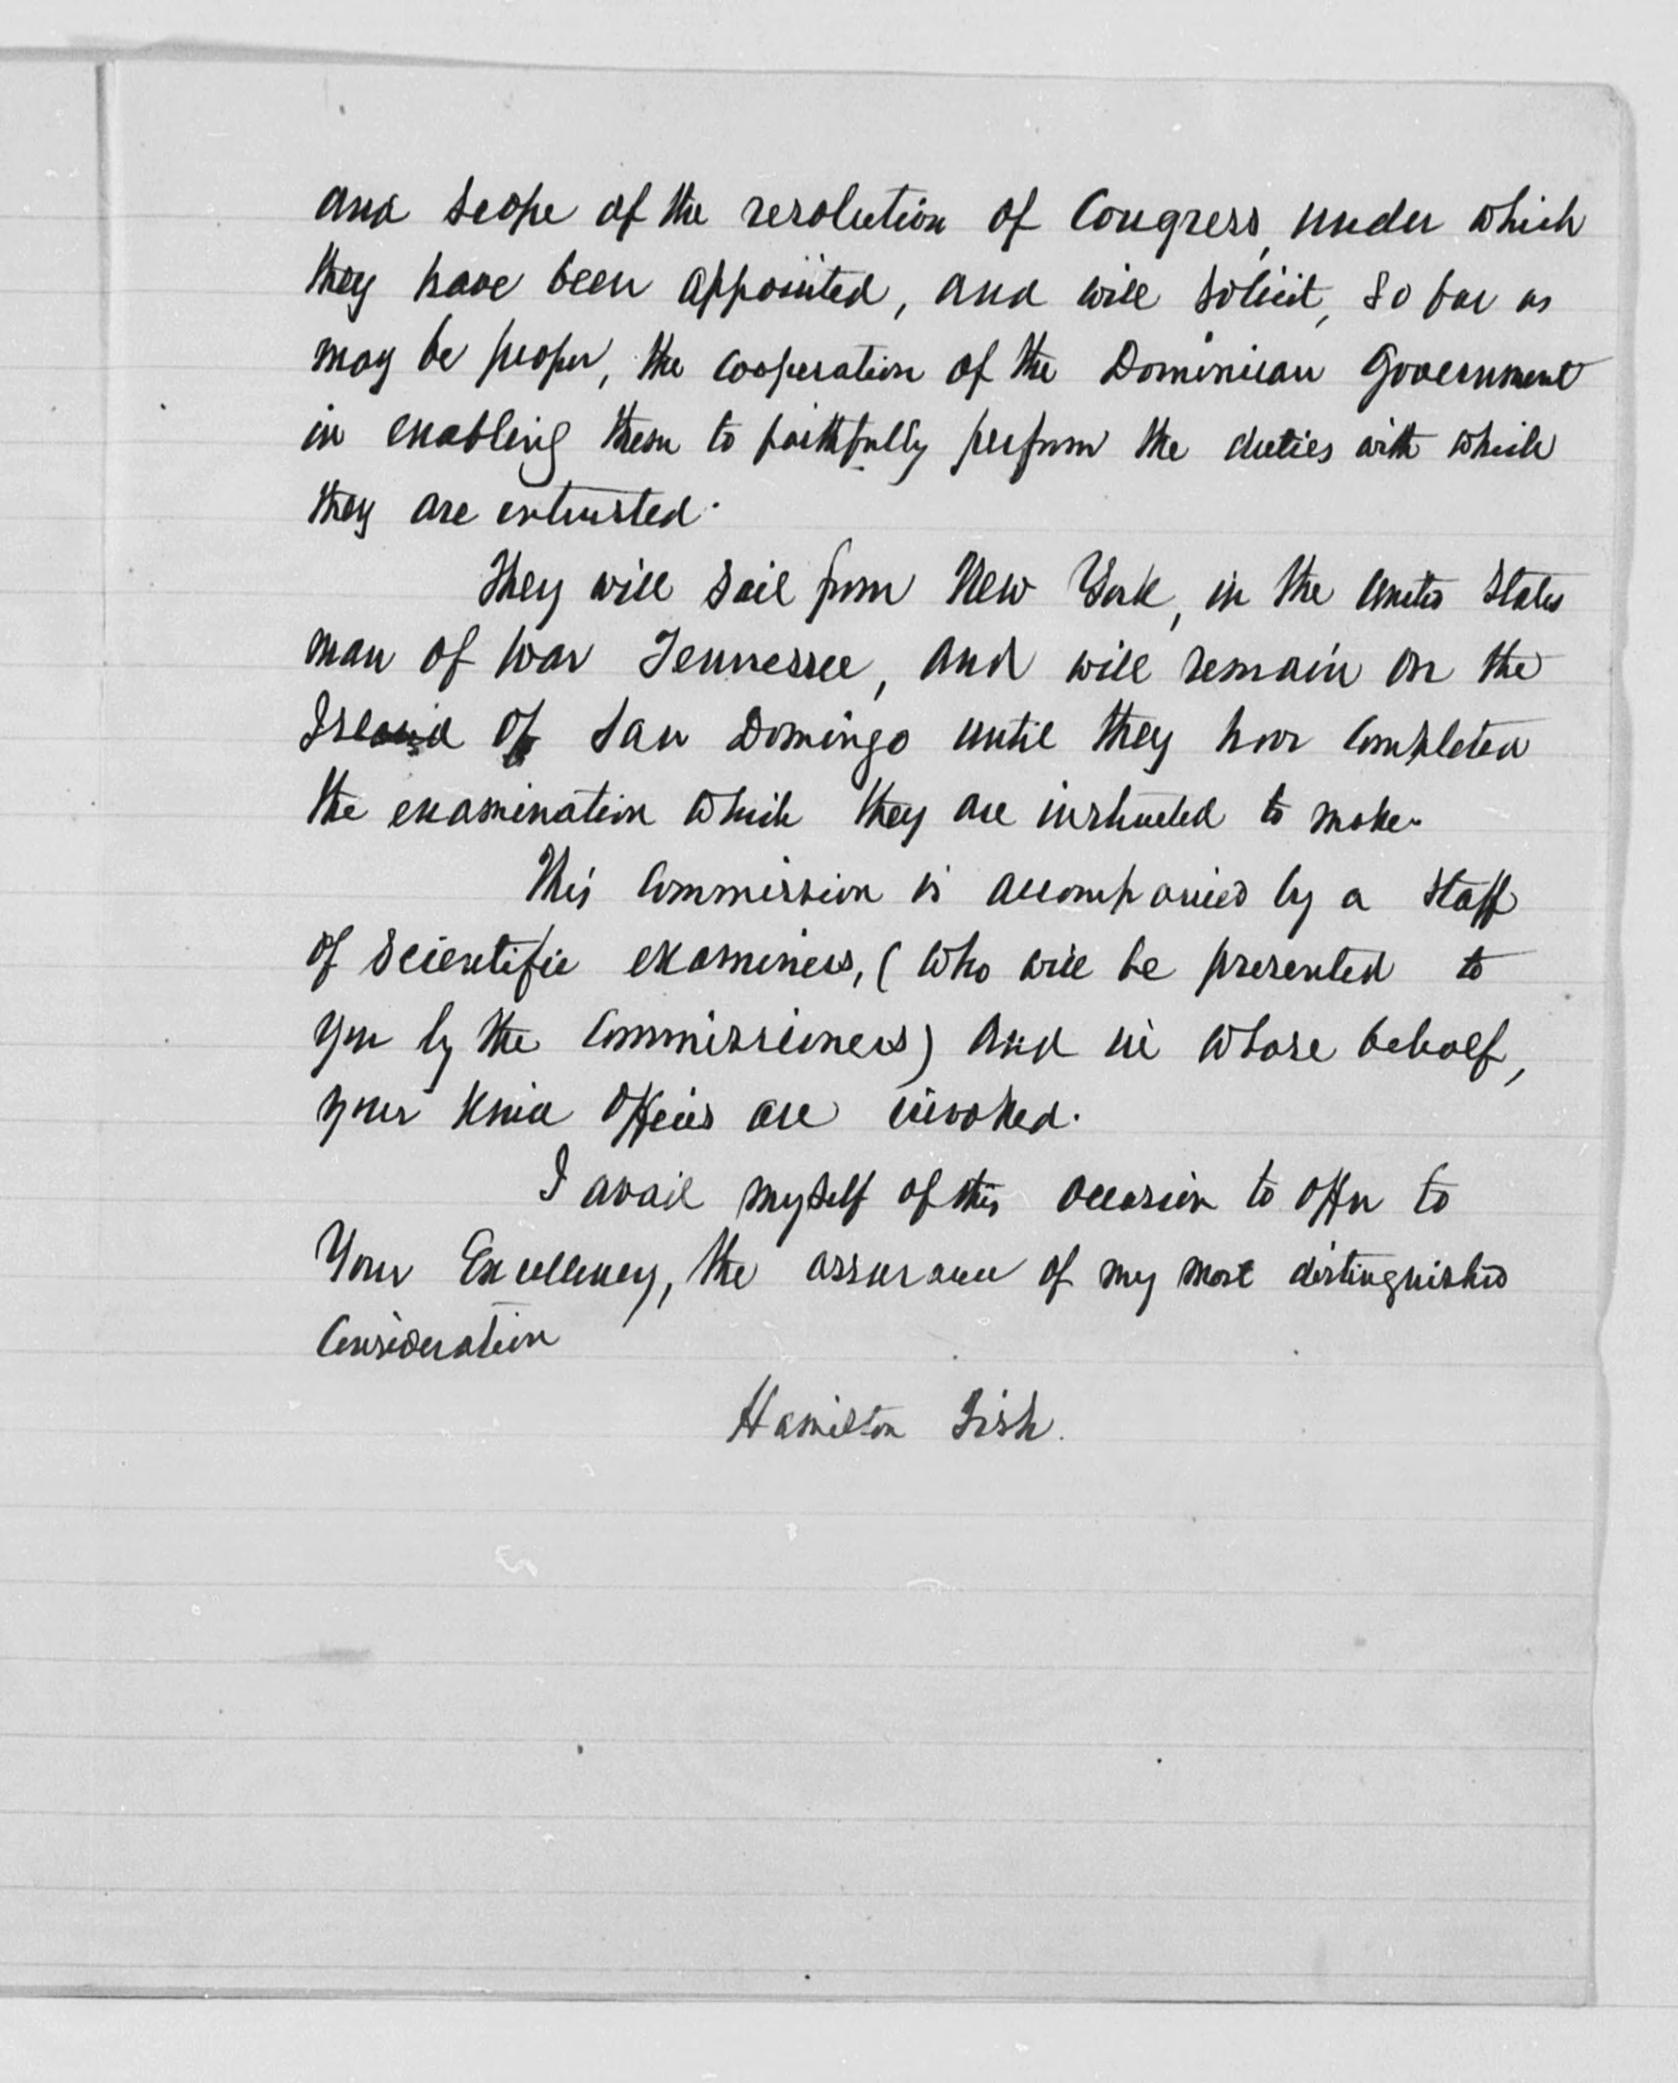 and scope of the resolution of Congress, under which
they have been appointed, and will solicit, so far as
may be proper, the cooperation of the Dominican Government
in enabling them to faithfully perform the duties with which
they are entrusted.
They will sail from New York, in the United States
man of war Tennessee, and will remain on the
Island of San Domingo until they have completed
the examination which they are instructed to make.
This Commission is accompanied by a staff
of scientific examiners, (who will be presented to
you by the Commissioners) and in whose behalf,
your kind offices are invoked.
I avail myself of this occasion to offer to
Your Excellency, the assurance of my most distinguished
Consideration
Hamilton Fish.